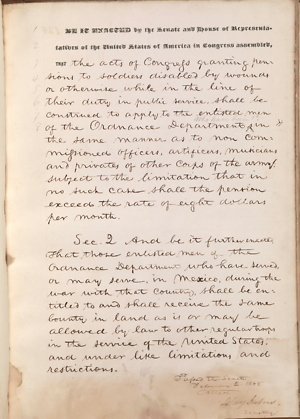 BE IT ENACTED by the Senate and House of Representa-
tatives of the United States of America in Congress assembled,
THAT the acts of Congress granting pen-
sions to soldiers disabled by wounds
or otherwise while in the line of
their duty in public service shall be
construed to apply to the enlisted men
of the Ordnance Department, in
the same manner as to non com-
missioned officers, artificers, musicians
and privates of other Corps of the army,
subject to the limitation that in
no such case shall the pension
exceed the rate of eight dollars
per month.
Sec. 2 And be it further enacted
that those enlisted men of the
Ordnance Department who have served
or may serve, in Mexico, during the
war with that Country, shall be en-
titled to and shall receive the same
bounty in land as is or may be
allowed by law to other regular troops
in the service of the United States,
and under like limitations and
restrictions.
Passed the Senate
February